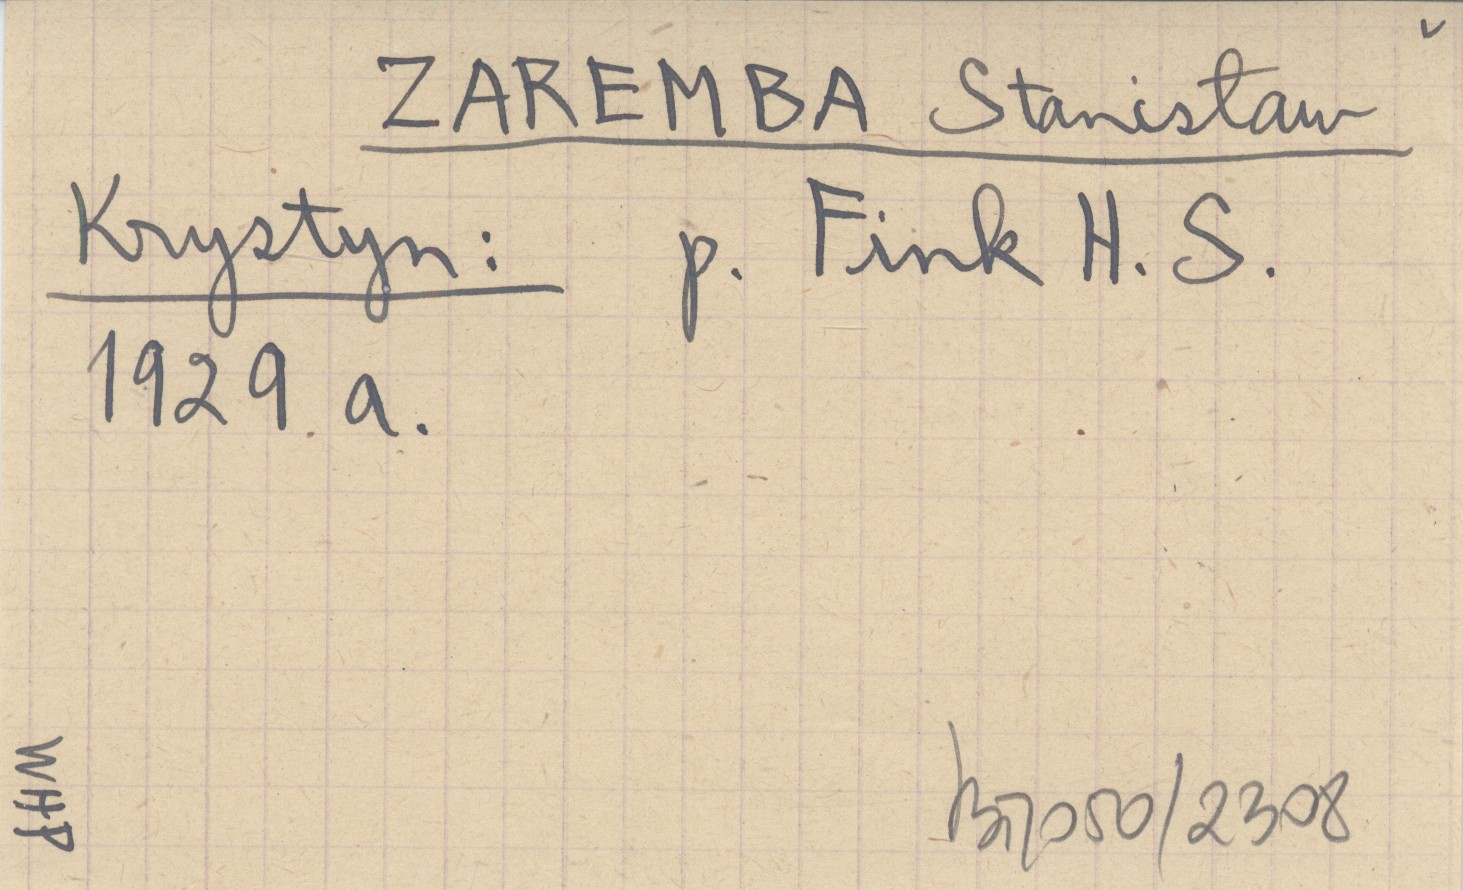 v
ZAREMBA Stanisław
Krystyn: p. Fink H. S.
1929 a.
WHP
/2308